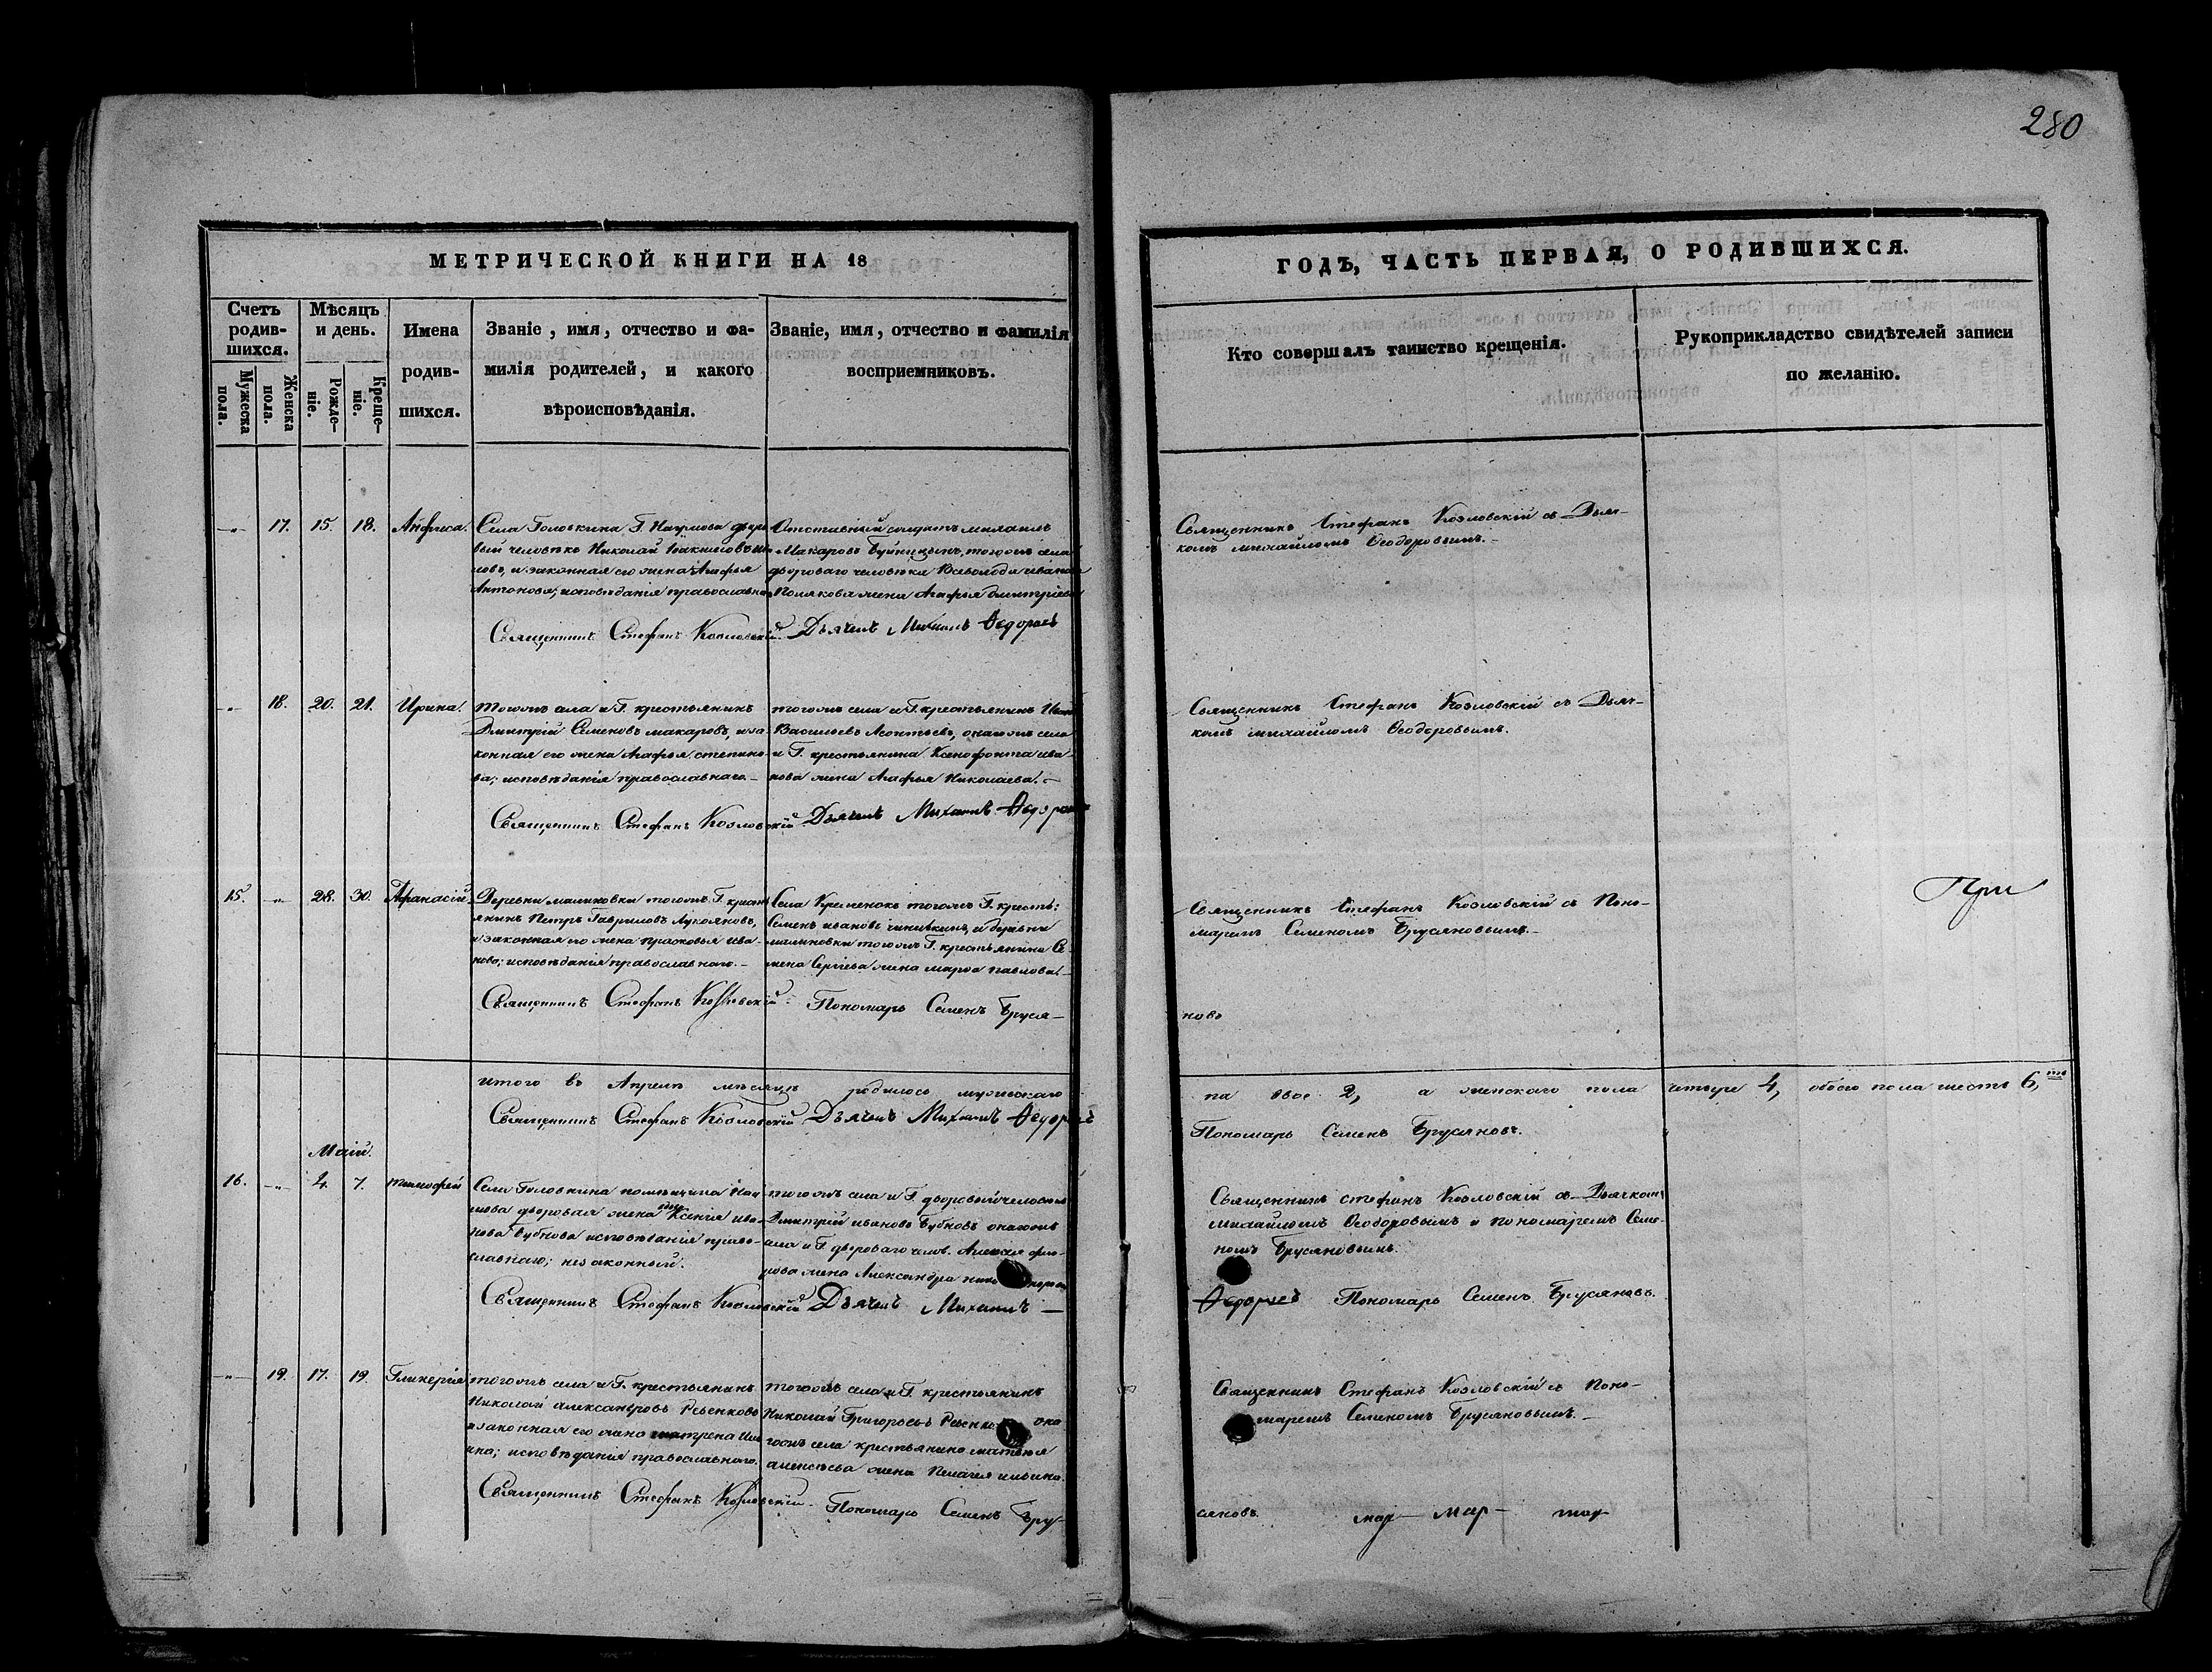 280
МЕТРИЧЕСКОЙ КНИГИ НА 18
ГОДЪ, ЧАСТЬ ПЕРВАЯ, О РОДИВШИХСЯ.
Счетъ родив-шихся.
Мужеска пола.
Женска пола.
Мѣсяцъ и день.
Рожде-ніе.
Креще-ніе.
Имена
родив-
шихся.
Званіе, имя, отчество и фа-
милія родителей, и какого
вѣроисповѣданія.
Званіе, имя, отчество и фамилія
восприемниковъ.
Кто совершалъ таинство крещенія.
Рукоприкладство свидѣтелей записи
по желанію.
17. 15. 18. Анфиса.
Села Головкина Г. Наумова дворо
вый человѣкъ Николай
новъ, и законная его жена Агафья
Антонова; исповѣданія православна
Священникъ Стефанъ Козловскій
Отставный солдатъ Михаилъ
Макаровъ тогожъ села
двороваго человѣка Всеволода Ивано
Полякова жена Агафья Дмитріева
Дьячекъ Михаилъ Ѳедоровъ
Священникъ Стефанъ Козловскій съ Дьяч-
комъ Михайломъ Ѳеодоровымъ.
18. 20. 21. Ирина.
тогожъ села и Г. крестьянинъ
Дмитрій Семеновъ Макаровъ, и за
конная его жена Агафья Степано
ва; исповѣданія православнаго.
Священникъ Стефанъ Козловскій
тогожъ села и Г. крестьянинъ Иван
Васильевъ Леонтьевъ, онагожъ села
и Г. крестьянина Ксенофонта Ива-
нова жена Агафья Николаева.
Дьячекъ Михаилъ Ѳедоровъ
Священникъ Стефанъ Козловскій съ Дьяч-
комъ Михайломъ Ѳеодоровымъ.
15. 28. 30. Афанасій
Деревни Малиновки тогожъ Г. крест
янинъ Петръ Гавриловъ Лукояновъ,
и законная его жена Прасковья Ива-
нова; исповѣданія православнаго.
Священникъ Стефанъ Козловскій
Села Кременокъ тогожъ Г. кресть:
Семенъ Ивановъ и деревни
Малиновки тогожъ Г. крестьянина Се
мена Сергѣева жена Марѳа Павлова.
Пономарь Семенъ Бруся-
новъ
Священникъ Стефанъ Козловскій съ Поно-
маремъ Семеномъ Брусяновымъ.
При
итого въ Апрелѣ мѣсяцѣ родилось мужескаго
па двое 2, а женскаго пола четыре 4, обоего пола шесть 6,
Священникъ Стефанъ Козловскій Дьячекъ Михаилъ Ѳедоровъ
Пономарь Семенъ Брусяновъ.
Маій.
16. 4. 7. Тимофей
Села Головкина помѣщика Нау
мова дворовая жена Ксенія Ива-
нова Бубнова исповѣданія право-
славнаго; незаконный.
Священникъ Стефанъ Козловскій
тогожъ села и Г. дворовый человѣкъ
Дмитрій Ивановъ Бубновъ онагожъ
села и Г. двороваго челов. Алексѣя
жена Александра
Дьячекъ Михаилъ
Ѳедоровъ Пономарь Семенъ Брусяновъ.
Священникъ Стефанъ Козловскій съ Дьячкомъ
Михайломъ Ѳеодоровымъ и пономаремъ Семе-
номъ Брусяновымъ.
19. 17. 19. Гликерія
тогожъ села и Г. крестьянинъ
Николай Александровъ Ребенковъ
и законная его жена
ина; исповѣданія православнаго.
Священникъ Стефанъ Козловскій
тогожъ села и Г. крестьянинъ
Николай Григорьевъ она
гожъ села крестьянина Матвѣя
Алексѣева жена Пелагея Ильина.
Пономарь Семенъ Бру-
сяновъ.
Священникъ Стефанъ Козловскій съ Поно-
маремъ Семеномъ Брусяновымъ.
мар- мар-